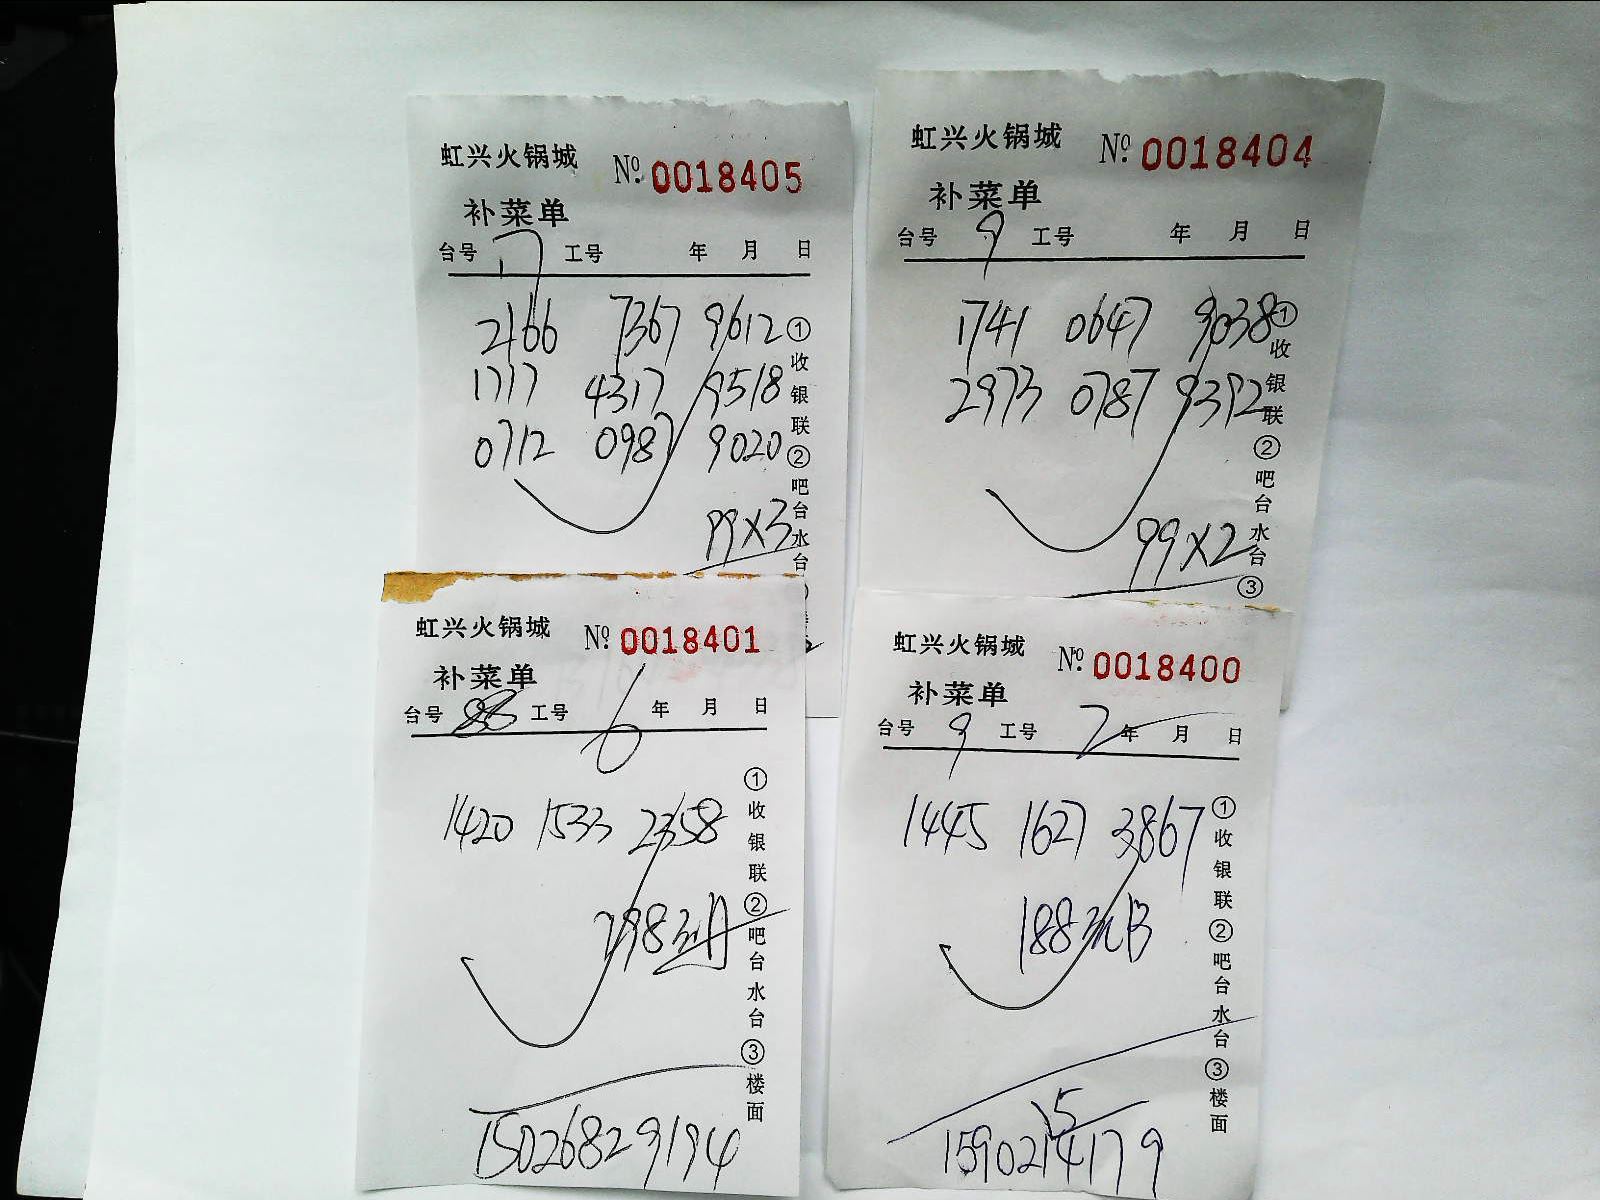 虹兴火锅城 №. 0018405
补菜单
台号 17 工号 年 月 日
2166 7367 9612
1717 4317 9518
0712 0987 9020
99×3
①收银联②吧台水台
虹兴火锅城 №. 0018404
补菜单
台号 9 工号 年 月 日
1741 0647 9038
2973 0787 9392
99×2
①收银联②吧台水台③
虹兴火锅城 №. 0018401
补菜单
台号 工号 6 年 月 日
1420 1533 2358
298
15026829194
①收银联②吧台水台③楼面
虹兴火锅城 №. 0018400
补菜单
台号 9 工号 2 年 月 日
1445 1627 3867
188
15
15902141179
①收银联②吧台水台③楼面